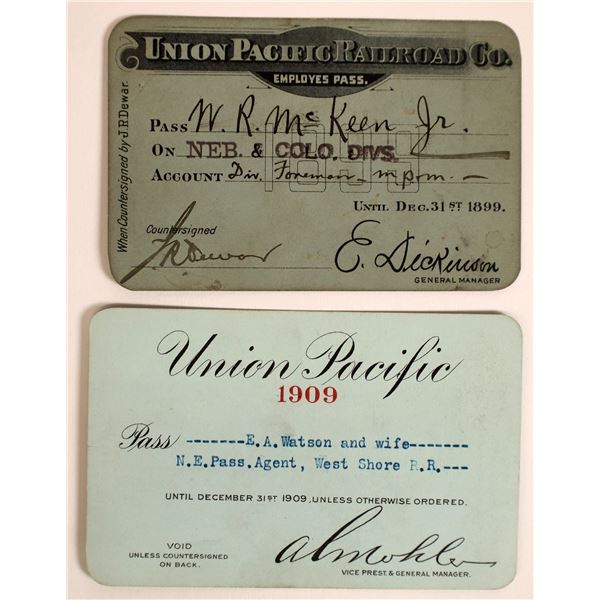 UNION PACIFIC RAILROAD CO.
EMPLOYES PASS.
When Countersigned by J.R. Dewar.
PASS W. R. McKeen Jr.
ON NEB. & COLO. DIVS.
1899
ACCOUNT Div. Foreman - mpm. -
UNTIL DEC. 31ST 1899.
Countersigned
J R Dewar
E. Dickinson
GENERAL MANAGER
Union Pacific
1909
Pass -------E.A.Watson and wife-------
N.E.Pass.Agent, West Shore R.R.---
UNTIL DECEMBER 31ST 1909, UNLESS OTHERWISE ORDERED.
VOID
UNLESS COUNTERSIGNED
ON BACK.
A L Mohler
VICE PREST. & GENERAL MANAGER.